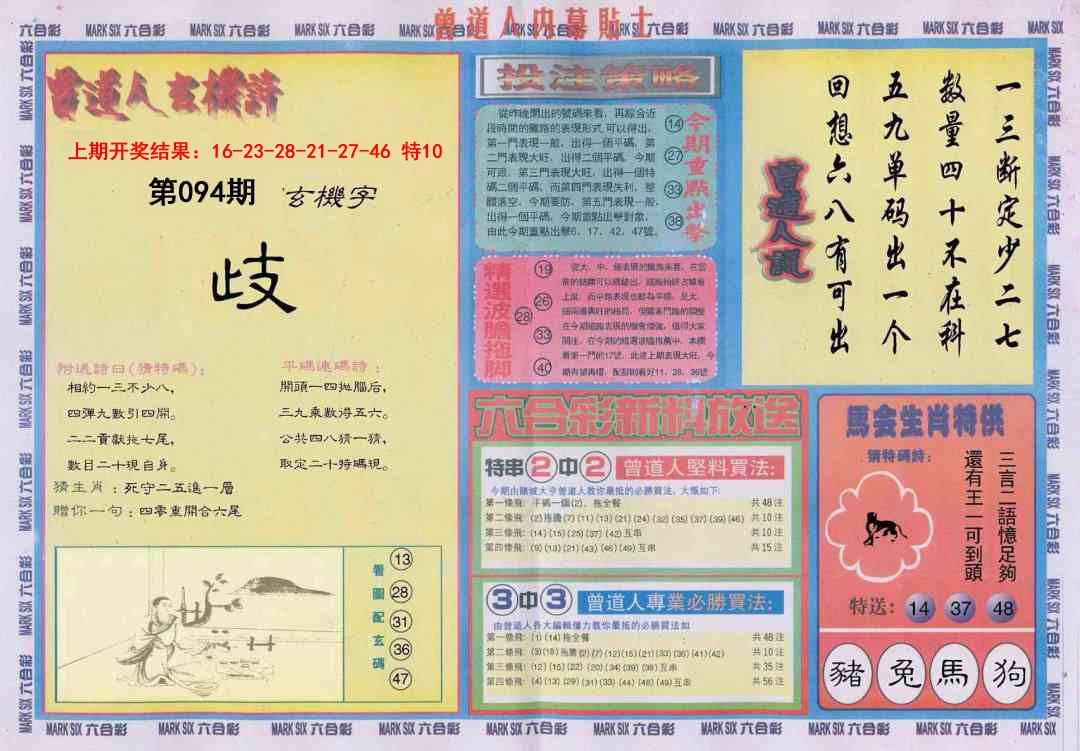 曾道人内幕貼士
MARK SIX 六合彩
曾道人玄機詩
上期开奖结果：16-23-28-21-27-46 特10
第094期 玄機字
歧
附送詩曰(猜特碼)：
相約一三不少八，
四彈九數引四開。
二二貢獻拖七尾，
數目二十現自身。
平碼連碼詩：
開頭一四拋腦后，
三九乘數得五六。
公共四八猜一猜，
取定二十特碼現。
猜生肖：死守二五進一層
贈你一句：四零重開合六尾
看圖配玄碼
13
28
31
36
47
投注策略
從昨晚開出的號碼來看，再綜合近
段時間的攤路的表現形式,可以得出，
第一門表現一般，出得一個平碼，第
二門表現大旺，出得二個平碼，今期
可跟，第三門表現大旺，出得一個特
碼二個平碼，而第四門表現失利，整
體落空，今期要防，第五門表現一般，
出得一個平碼，今期當點出擊對象，
由此今期重點出擊6、17、42、47號。
14
27
33
38
今期重點出擊
精選波膽拖脚
19
26
28
33
40
期有望再爆，配腳則看好11、28、36號
曾道人說
一三断定少二七
数量四十不在科
五九单码出一个
回想六八有可出
六合彩新料放送
特串2中2 曾道人堅料買法：
今期由賭城大亨曾道人教你最抵的必勝買法，大概如下：
第一條飛：平碼一個(2)、拖全餐 共48注
第二條飛：(2)拖膽(7)(11)(13)(21)(24)(32)(35)(37)(39)(46) 共10注
第三條飛：(14)(15)(25)(37)(42)互串 共10注
第四條飛：(9)(13)(21)(43)(46)(49)互串 共15注
3中3 曾道人專業必勝買法：
由曾道人各大編輯僅力教你最抵的必勝買法如
第一條飛：(1)(14)拖全餐 共48注
第二條飛：(3)(18)拖膽(2)(7)(12)(15)(21)(33)(36)(41)(42) 共10注
第三條飛：(12)(15)(22)(20)(34)(39)(38)互串 共35注
第四條飛：(4)(13)(29)(31)(33)(44)(48)(49)互串 共56注
馬会生肖特供
猜特碼詩：
三言二語憶足夠
還有王一可到頭
特送：14 37 48
豬 兔 馬 狗
MARK SIX 六合彩